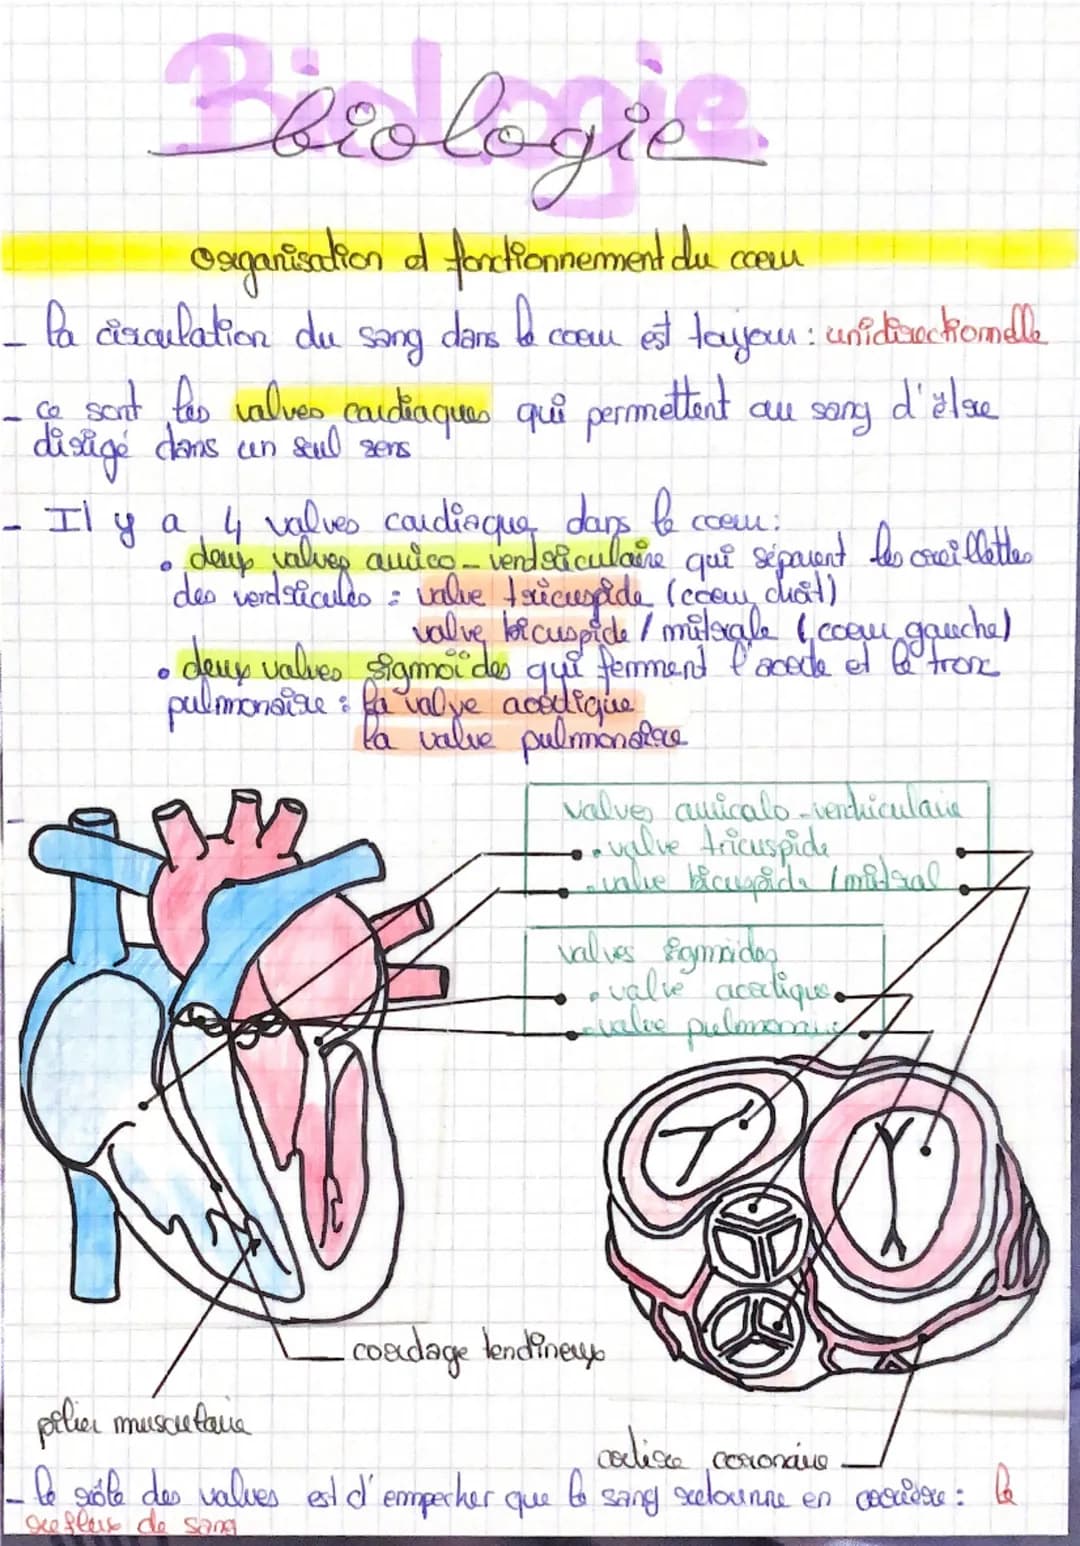 Biologie
biologie
organisation et fonctionnement du cœur
_ la circulation du sang dans le cœur est toujour : unidirectionnelle
_ ce sont les valves cardiaques qui permettent au sang d'être
dirigé dans un seul sens
- Il y a 4 valves cardiaque dans le cœur :
• deux valves aurico-ventriculaire qui séparent les oreillettes
des ventricules : valve tricuspide (cœur droit)
valve bicuspide / mitrale (cœur gauche)
• deux valves sigmoïdes qui ferment l'aorte et le tronc
pulmonaire : la valve aortique
la valve pulmonaire
valves auricalo-ventriculaire
• valve tricuspide
• valve bicuspide / mitral
valves sigmoides
• valve aortique
• valve pulmonaire
cordage tendineux
pilier musculaire
artère coronaire
- le rôle des valves est d'empecher que le sang retourne en arrière : le
reflux de sang